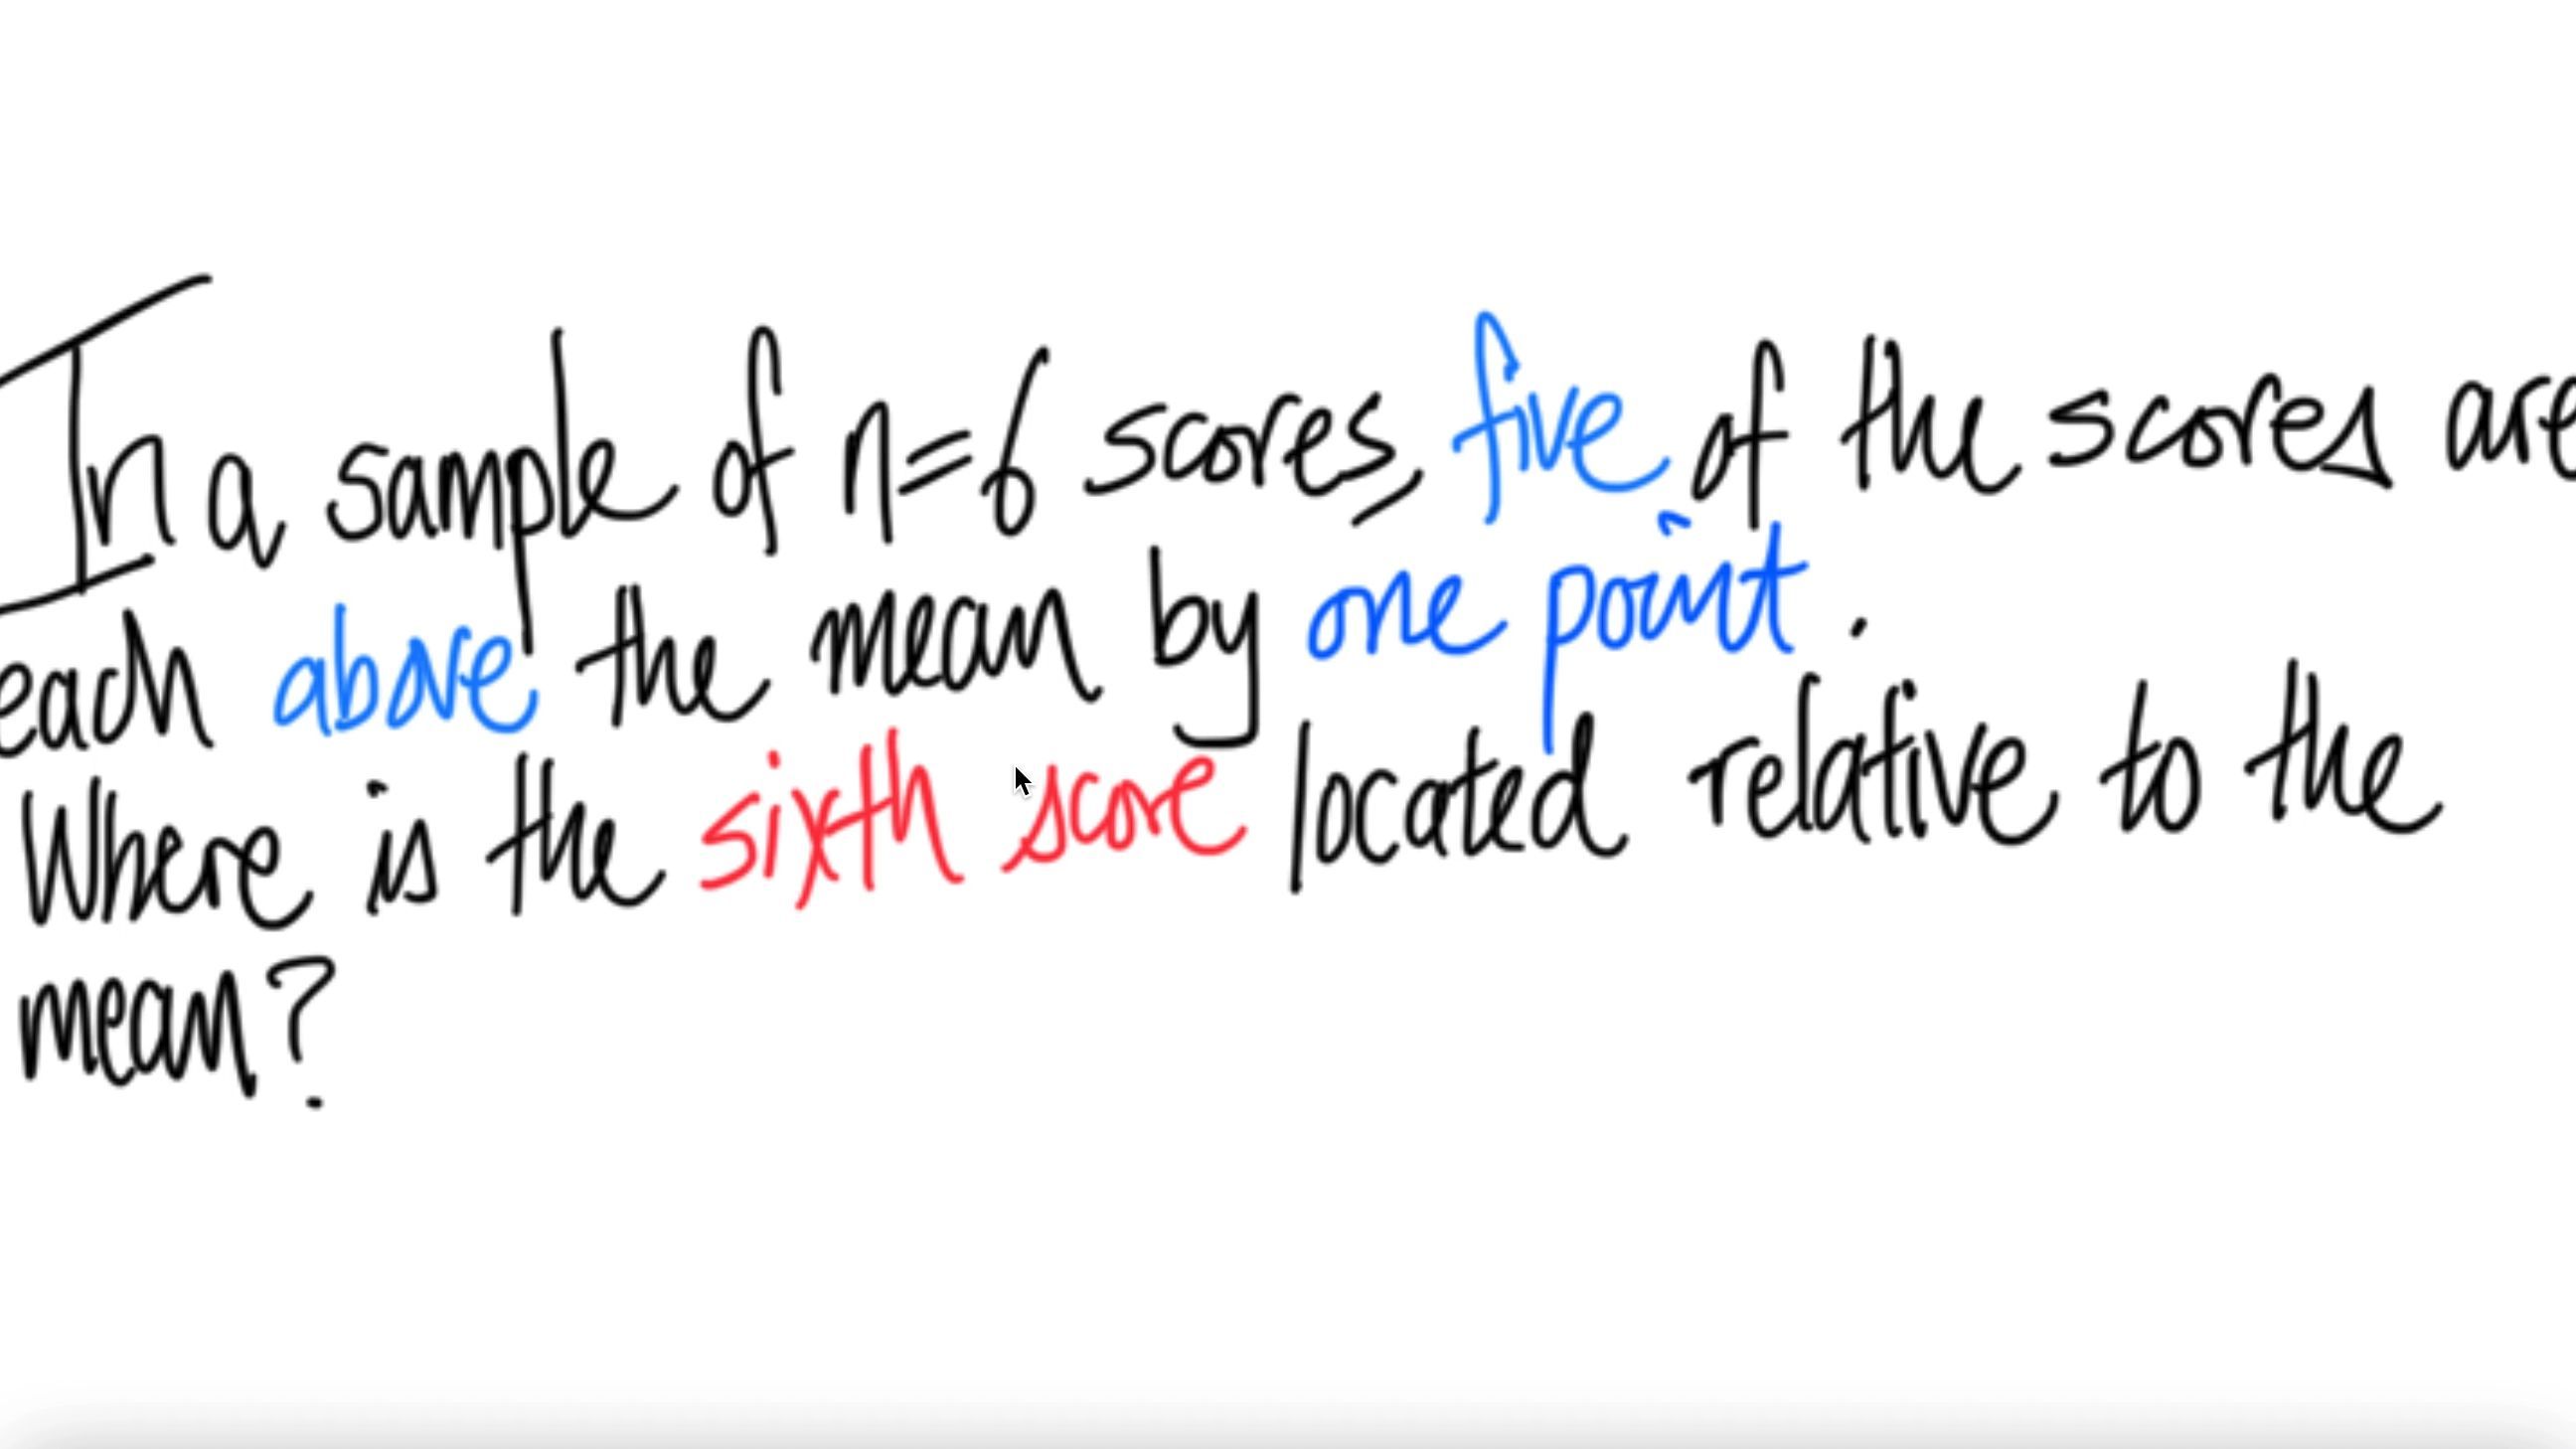 In a sample of n=6 scores, five of the scores are
each above the mean by one point.
Where is the sixth score located relative to the
mean?